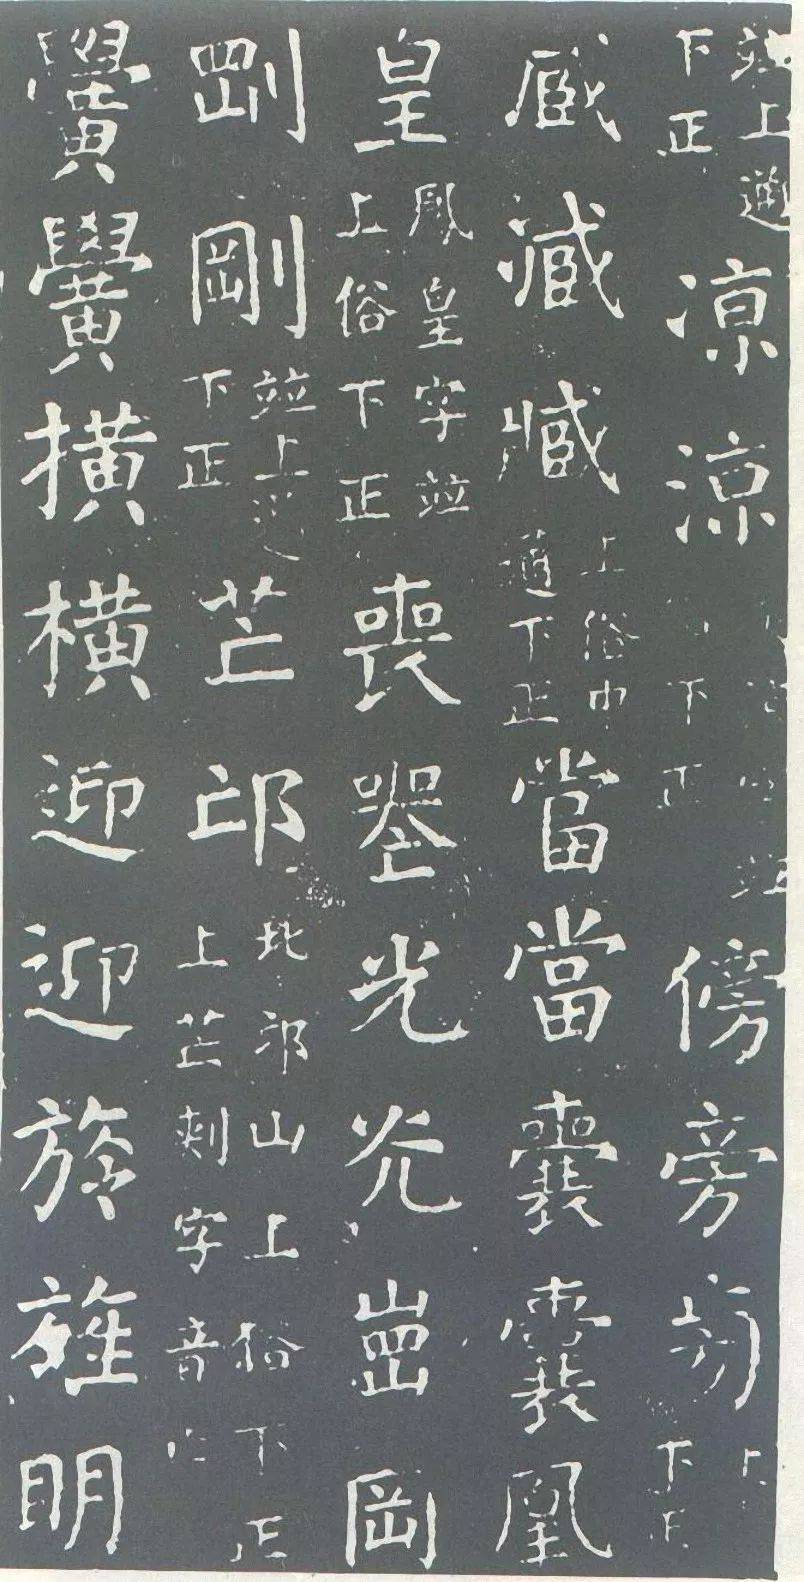 並上通
下正
凉涼
下正
傍旁
下正
臧藏臧
上俗中
通下正
當當囊囊凰
皇
鳳皇字並
上俗下正
喪𠸶光灮㟁岡
剛
並上通
下正
芒邙
北邙山上俗下正
上芒刺字音亡
黌黌撗橫迎迎旍旌明